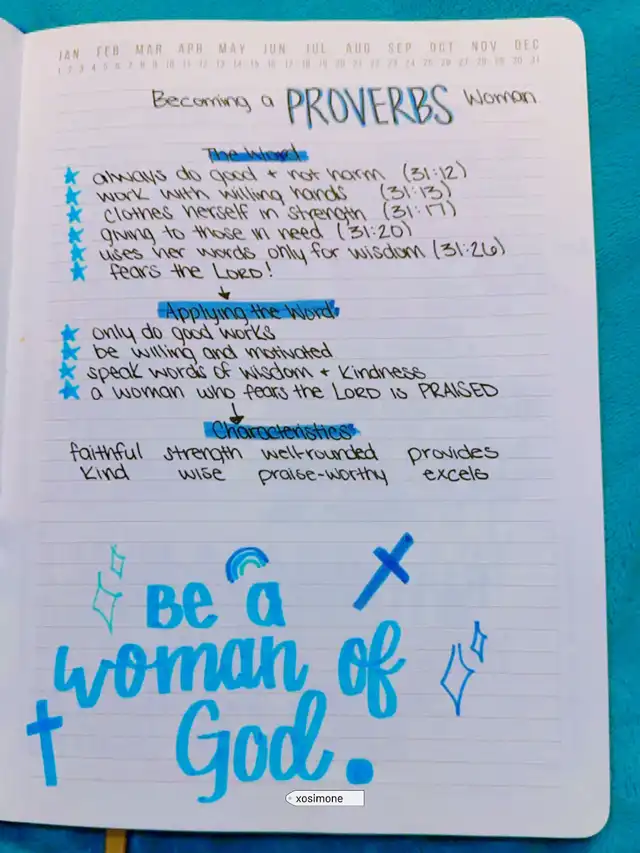 JAN FEB MAR APR MAY JUN JUL AUG SEP OCT NOV DEC
1 2 3 4 5 6 7 8 9 10 11 12 13 14 15 16 17 18 19 20 21 22 23 24 25 26 27 28 29 30 31
Becoming a PROVERBS Woman
The Word
always do good + not harm (31:12)
work with willing hands (31:13)
clothes herself in strength (31:17)
giving to those in need (31:20)
uses her words only for wisdom (31:26)
fears the LORD!
Applying the Word
only do good works
be willing and motivated
speak words of wisdom + kindness
a woman who fears the LORD is PRAISED
Characteristics
faithful strength well-rounded provides
kind wise praise-worthy excels
Be a
woman of
God.
xosimone